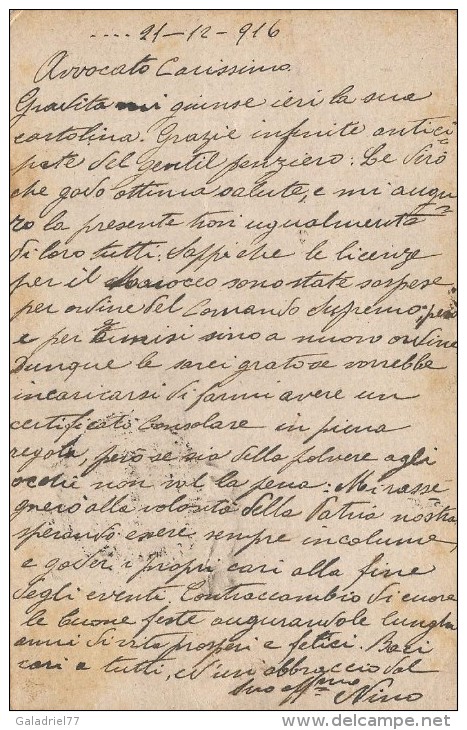 .... 21-12-916
Avvocato Carissimo
Gradita mi giunse ieri la sua
cartolina. Grazie infinite antici
pate del gentil penziero. Le dirò
che godo ottima salute, e mi augu
ro la presente trovi ugualmente
di loro tutti. Sappi che le licenze
per il Marocco sono state sospese
per ordine del Comando Supremo,
e per sino a nuovo ordine
Dunque le sarei grato se vorrebbe
incaricarsi di farmi avere un
certificato Consolare in piena
regola, però se sia della polvere agli
occhi non val la pena. Mi rasse
gnerò alla volontà della Patria nostra
sperando essere sempre incolume,
e goder i propri cari alla fine
degli eventi. Contraccambio di cuore
le buone feste augurandole lunghi
anni di vita prosperi e felici. Baci
cari a tutti, ed un abbraccio dal
suo aff.mo Nino
Galadriel77
Galadriel77
delcampe.net